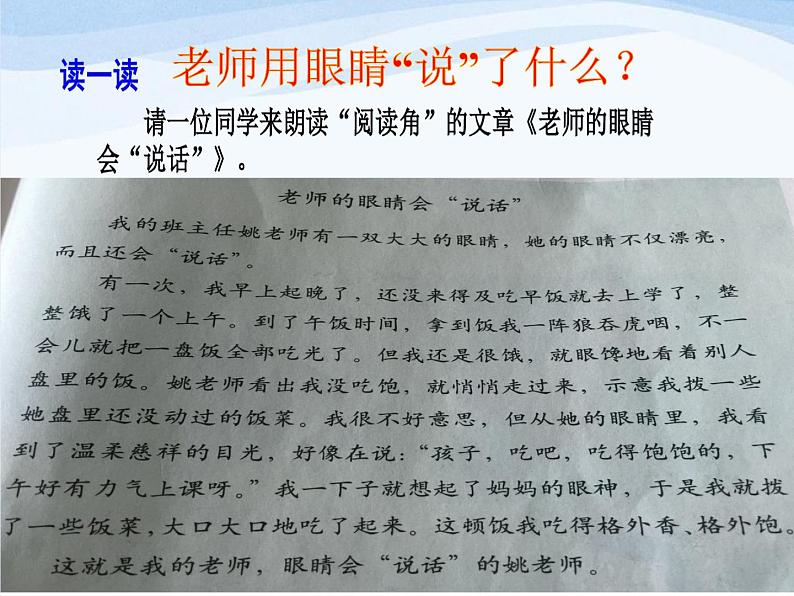 读一读 老师用眼睛“说”了什么？
请一位同学来朗读“阅读角”的文章《老师的眼睛
会“说话”》。
老师的眼睛会“说话”
我的班主任姚老师有一双大大的眼睛，她的眼睛不仅漂亮，
而且还会“说话”。
有一次，我早上起晚了，还没来得及吃早饭就去上学了，整
整饿了一个上午。到了午饭时间，拿到饭我一阵狼吞虎咽，不一
会儿就把一盘饭全部吃光了。但我还是很饿，就眼馋地看着别人
盘里的饭。姚老师看出我没吃饱，就悄悄走过来，示意我拨一些
她盘里还没动过的饭菜。我很不好意思，但从她的眼睛里，我看
到了温柔慈祥的目光，好像在说：“孩子，吃吧，吃得饱饱的，下
午好有力气上课呀。”我一下子就想起了妈妈的眼神，于是我就拨
了一些饭菜，大口大口地吃了起来。这顿饭我吃得格外香、格外饱。
这就是我的老师，眼睛会“说话”的姚老师。